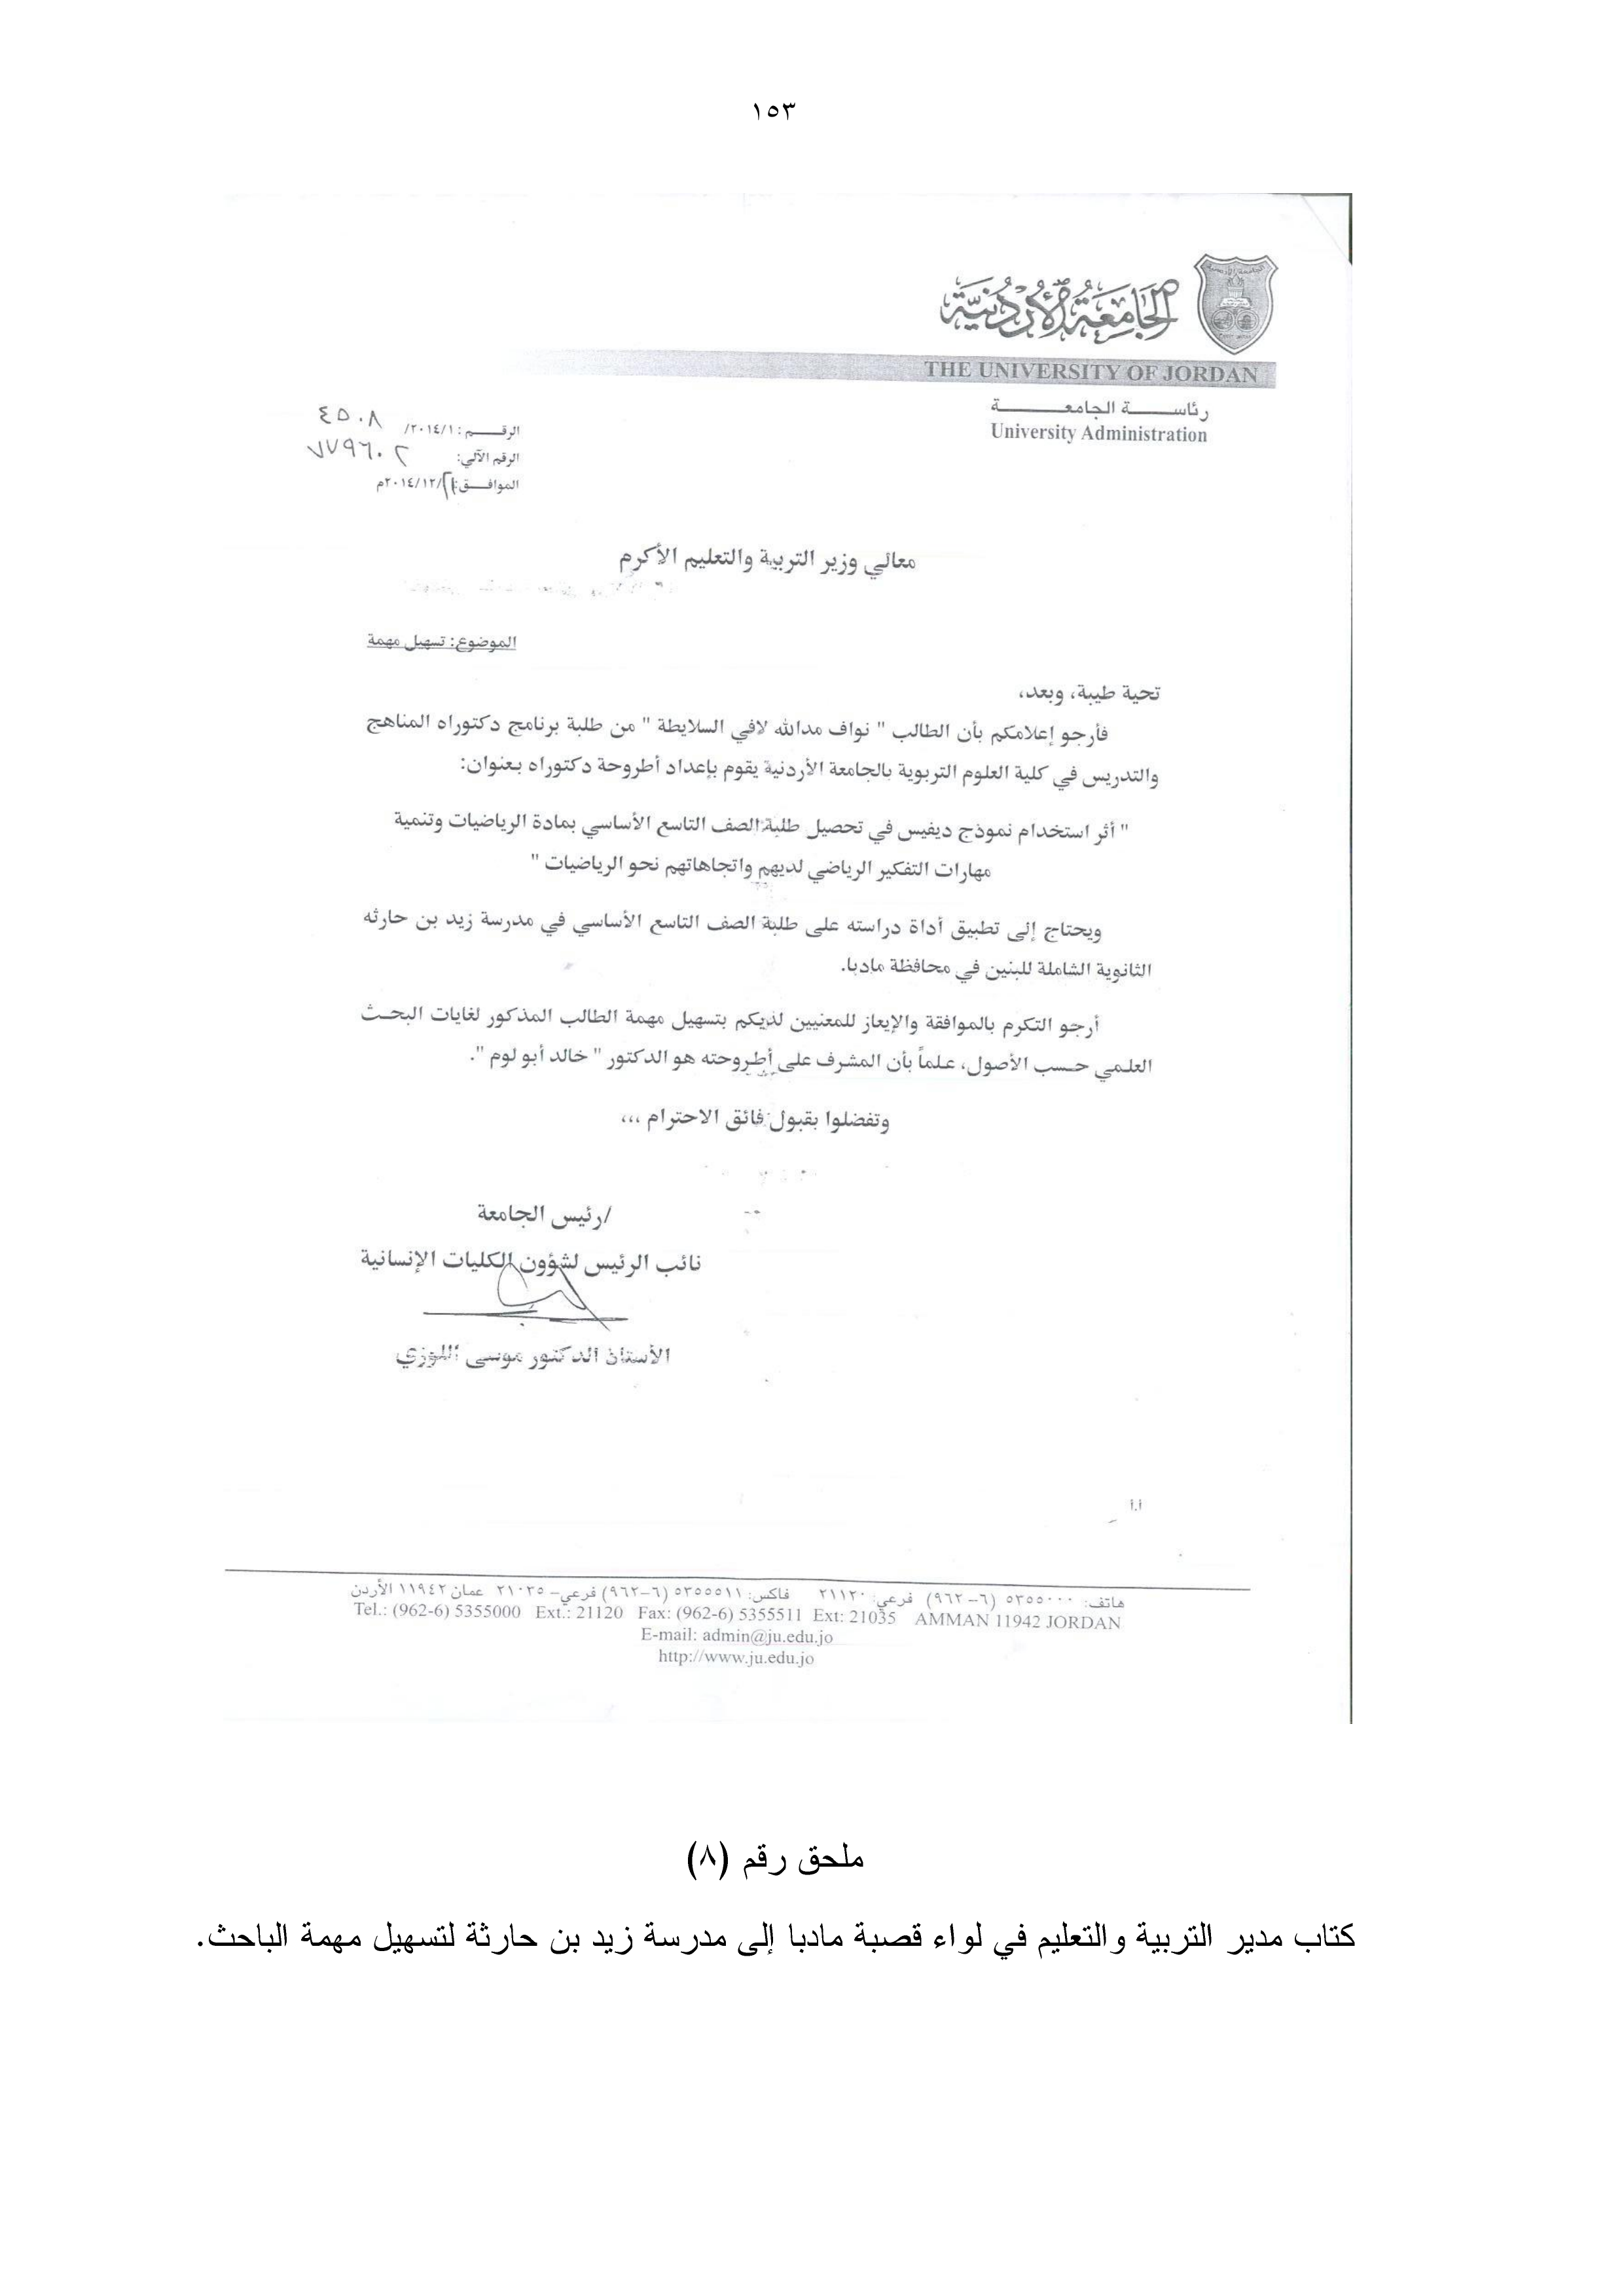 ١٥٣
الجامعة الأردنية
THE UNIVERSITY OF JORDAN
رئاســـة الجامعـــــة
University Administration
الرقـــم: ٢٠١٤/١/ ٤٥٠٨
الرقم الآلي: ٧٧٩٦٠٢
الموافـــق: /٢٠١٤/١٢م
معالي وزير التربية والتعليم الأكرم
الموضوع: تسهيل مهمة
تحية طيبة، وبعد،
فأرجو إعلامكم بأن الطالب " نواف مدالله لافي السلايطة " من طلبة برنامج دكتوراه المناهج
والتدريس في كلية العلوم التربوية بالجامعة الأردنية يقوم بإعداد أطروحة دكتوراه بعنوان:
" أثر استخدام نموذج ديفيس في تحصيل طلبة الصف التاسع الأساسي بمادة الرياضيات وتنمية
مهارات التفكير الرياضي لديهم واتجاهاتهم نحو الرياضيات "
ويحتاج إلى تطبيق أداة دراسته على طلبة الصف التاسع الأساسي في مدرسة زيد بن حارثه
الثانوية الشاملة للبنين في محافظة مادبا.
أرجو التكرم بالموافقة والإيعاز للمعنيين لديكم بتسهيل مهمة الطالب المذكور لغايات البحث
العلمي حسب الأصول، علماً بأن المشرف على أطروحته هو الدكتور " خالد أبو لوم ".
وتفضلوا بقبول فائق الاحترام ،،،
/رئيس الجامعة
نائب الرئيس لشؤون الكليات الإنسانية
الأستاذ الدكتور موسى اللوزي
أ.أ
هاتف: ٥٣٥٥٠٠٠ (٦–٩٦٢) فرعي: ٢١١٢٠ فاكس: ٥٣٥٥٥١١ (٦–٩٦٢) فرعي– ٢١٠٣٥ عمان ١١٩٤٢ الأردن
Tel.: (962-6) 5355000 Ext.: 21120 Fax: (962-6) 5355511 Ext: 21035 AMMAN 11942 JORDAN
E-mail: admin@ju.edu.jo
http://www.ju.edu.jo
ملحق رقم (٨)
كتاب مدير التربية والتعليم في لواء قصبة مادبا إلى مدرسة زيد بن حارثة لتسهيل مهمة الباحث.